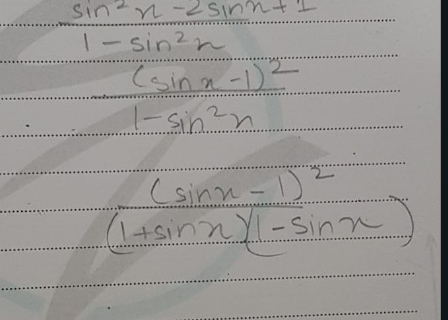 sin²x - 2sinx + 1
1 - sin²x
(sinx - 1)²
1 - sin²x
(sinx - 1)²
(1+sinx)(1-sinx)